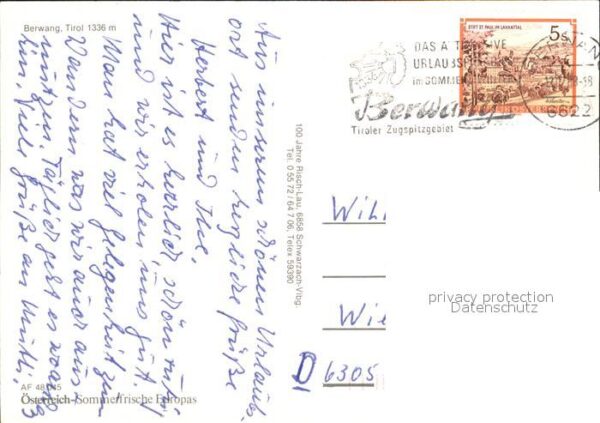 Berwang, Tirol 1336 m
Aus unserem schönen Urlaubs,
ort senden herzliche Grüße
Herbert und Ilse,
Hier ist es herrlich schön ruhig
und wir erholen uns gut.
Man hat viel gelegenheit zum
Wandern was wir auch aus,
nützen. Täglich geht es woanders
hin. Viele Grüße an Mutti.
AF 48
Österreich-Sommerfrische Europas
100 Jahre Risch-Lau, 6858 Schwarzach-Vlbg.
Tel. 0 55 72 / 64 7 06, Telex 59390
STIFT ST. PAUL IM LAVANTTAL
5s
DAS
URLAUBS
im SOMMER
Berwang
Tiroler Zugspitzgebiet
6622
Wilh
Wie
D 6305
privacy protection
Datenschutz